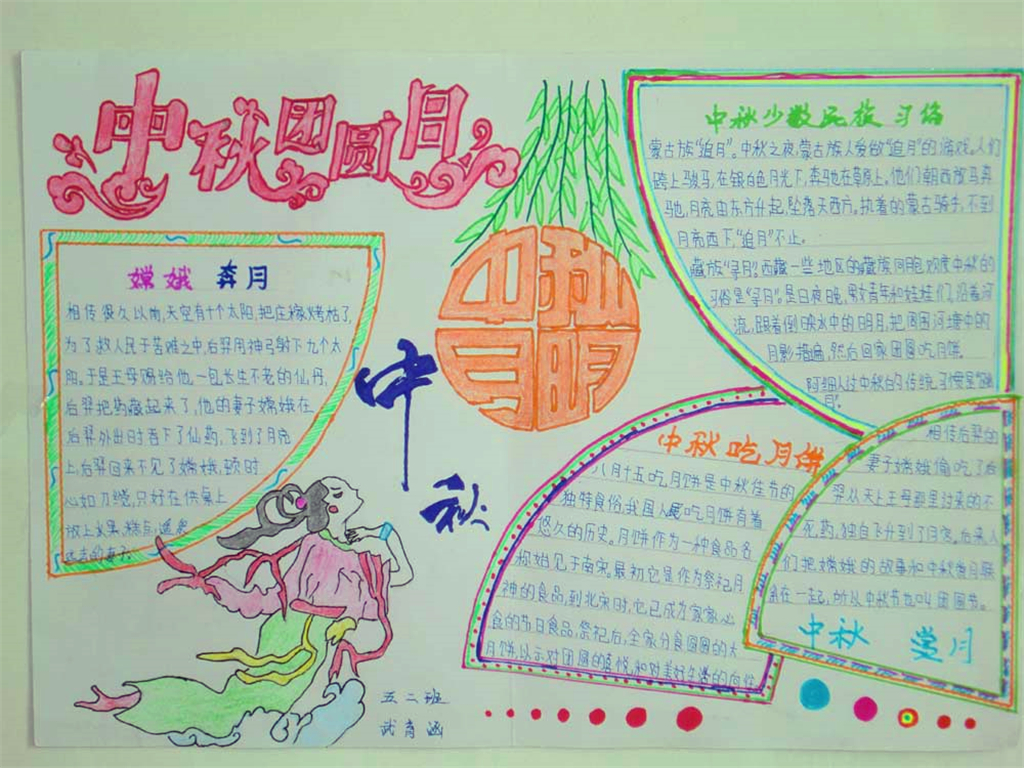 中秋团圆月
嫦娥 奔月
相传很久以前,天空有十个太阳,把庄稼烤枯了,
为了救人民于苦难之中,后羿用神弓射下九个太
阳。于是王母赐给他一包长生不老的仙丹,
后羿把药藏起来了,他的妻子嫦娥在
后羿外出时吞下了仙药,飞到了月亮
上,后羿回来不见了嫦娥,顿时
心如刀绞,只好在供桌上
放上水果、糕点,遥祭
远去的妻子。
中秋
中秋
月明
五二班
中秋少数民族习俗
蒙古族“追月”。中秋之夜,蒙古族人爱做“追月”的游戏。人们
跨上骏马,在银白色月光下,奔驰在草原上。他们朝西放马奔
驰,月亮由东方升起,坠落天西方。执着的蒙古骑手,不到
月亮西下,“追月”不止。
藏族“寻月”。西藏一些地区的藏族同胞欢度中秋的
习俗是“寻月”。是日夜晚,男女青年和娃娃们,沿着河
流,跟着倒映水中的明月,把周围河塘中的
月影捕遍,然后回家团圆吃月饼。
阿细人过中秋的传统习惯是
月”。
中秋吃月饼
八月十五吃月饼是中秋佳节的
独特食俗,我国人民吃月饼有着
悠久的历史。月饼作为一种食品名
称始见于南宋。最初它是作为祭祀月
神的食品,到北宋时,它已成为家家必
食的节日食品,祭祀后,全家分食圆圆的大
月饼,以示对团圆的喜悦,和对美好生活的向往
相传后羿的
妻子嫦娥偷吃了后
羿从天上王母那里讨来的不
死药,独自飞升到了月宫。后来人
们把嫦娥的故事和中秋赏月联
在一起,所以中秋节也叫团圆节。
中秋 赏月